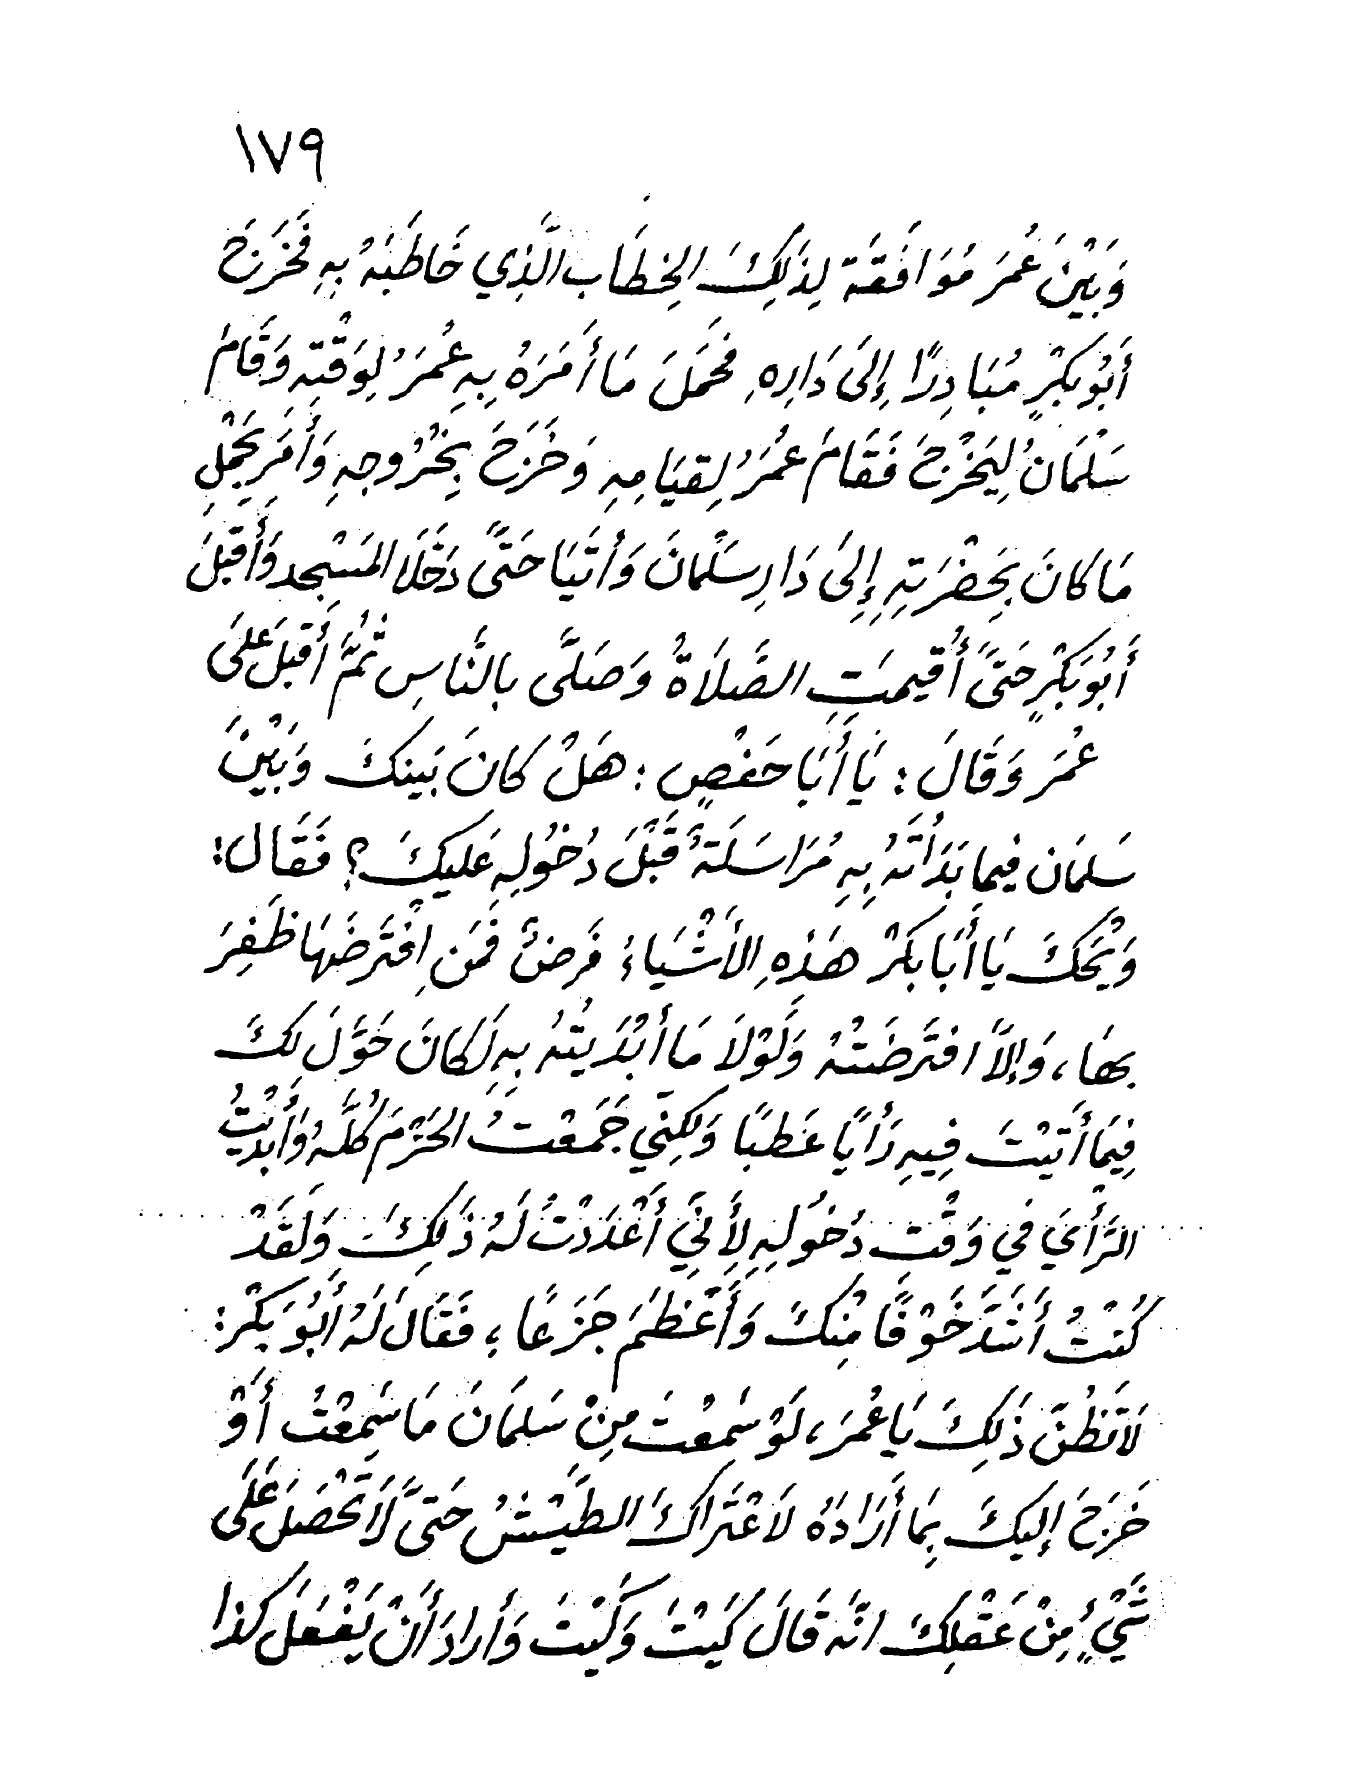 ١٧٩
وَبَيْنَ عُمَرَ مُوَافَقَة لِذَلِكَ الخِطَابِ الَّذِي خَاطَبَهُ بِهِ فَخَرَجَ
أَبُو بَكْرٍ مُبَادِرًا إِلَى دَارِهِ فَحَمَلَ مَا أَمَرَهُ بِهِ عُمَرُ لِوَقْتِهِ وَقَامَ
سَلْمَانُ لِيَخْرُجَ فَقَامَ عُمَرُ لِقِيَامِهِ وَخَرَجَ بِخُرُوجِهِ وَأَمَرَ بِحَمْلِ
مَا كَانَ بِحَضْرَتِهِ إِلَى دَارِ سَلْمَانَ وَأَتَيَا حَتَّى دَخَلَا المَسْجِد وَأَقْبَلَ
أَبُو بَكْرٍ حَتَّى أُقيمَتِ الصَّلَاةُ وَصَلَّى بِالنَّاسِ ثُمَّ أَقْبَلَ عَلَى
عُمَرَ وَقَالَ : يَا أَبَا حَفْصٍ : هَلْ كَانَ بَينكَ وَبَيْنَ
سَلمَان فيما بَدَأتَهُ بِهِ مُرَاسَلَةٌ قَبْلَ دُخُولِهِ عَليكَ ؟ فَقَال :
وَيْحَكَ يَا أَبَا بَكَرْ هَذِهِ الأَشْيَاءُ فَرضٌ فَمَنِ افْتَرَضَهَا ظَفِرَ
بهَا ، وَإِلاَّ افتَرَضَتْهُ وَلَوْلاَ مَا أبْدَيتُهُ بِهِ لَكَانَ خَوَّلَ لَكَ
فِيمَا أَتَيْتَ فِيهِ رَأيًا عَطِبًا وَلَكِنِّي جَمَعْتُ الحَزْمَ كُلَّهُ وَأَبْدَيْتُ
الرَّأْيَ فِي وَقْتِ دُخُولِهِ لِأَنِّي أَعْدَدْتُ لَهُ ذَلِكَ وَلَقَدْ
كُنْتُ أَشَدَّ خَوْفًا مِنْكَ وَأَعْظَمَ جَزَعًا ، فَقَالَ لَهُ أَبُو بَكْر :
لاَ تَظُنّ ذَلِكَ يَا عُمَرَ ، لَوْ سَمِعْتَ مِنْ سَلمَانَ مَا سَمِعْتُ أَوْ
خَرَجَ إِلَيكَ بِمَا أَرَادَهُ لاَعْتَرَاكَ الطَّيْشُ حَتَّى لاَ تَحْصَلَ عَلَى
شَيْءٍ مِنْ عَقْلِكَ انَّه قَالَ كَيْتَ وَكَيْتَ وَأَرادَ أَنْ يَفْعَلَ كَذا